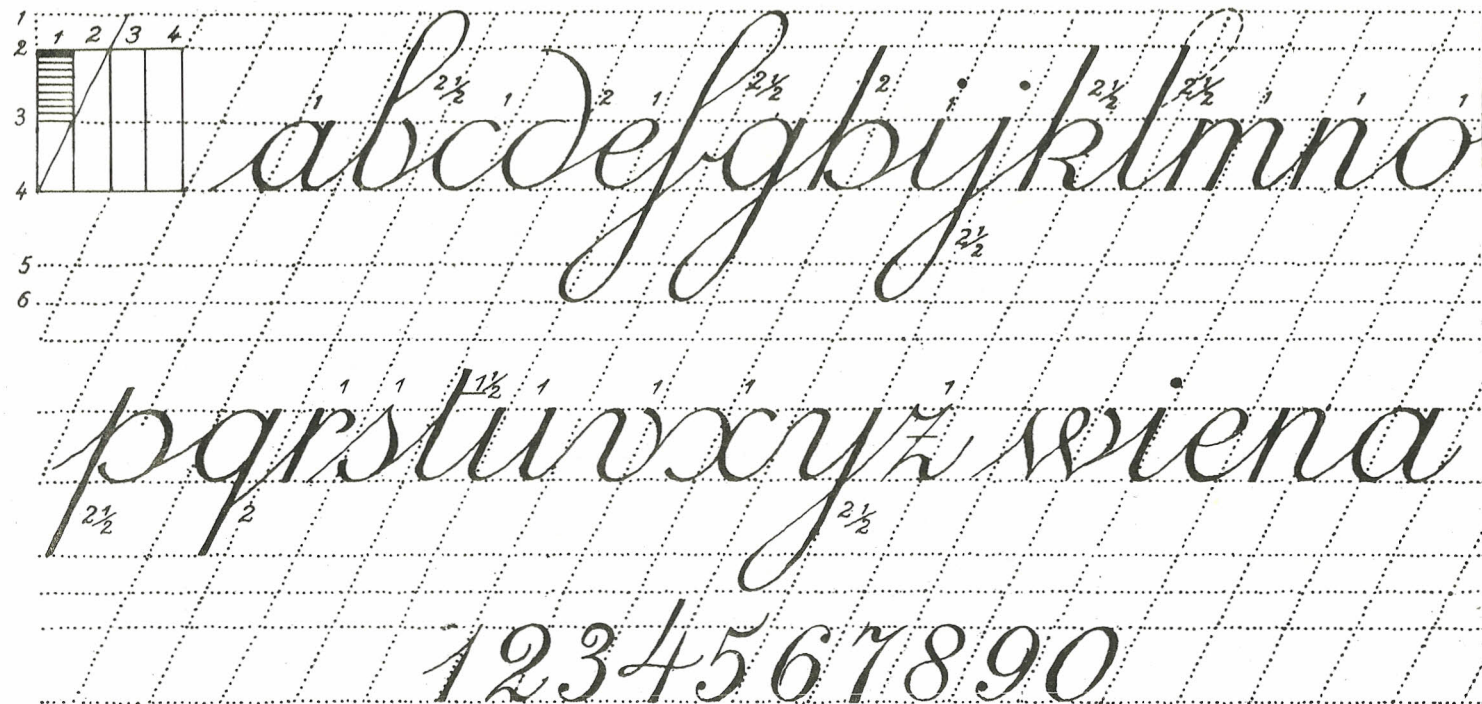 1
1 2 3 4
2
2½ 2½ 2 2½ 2½
1 1 2 1 1 1 1 1
3
abcdefghijklmno
4
2½
5
6
1 1 1½ 1 1 1 1
pqrstuvxyz wiena
2½ 2 2½
1234567890